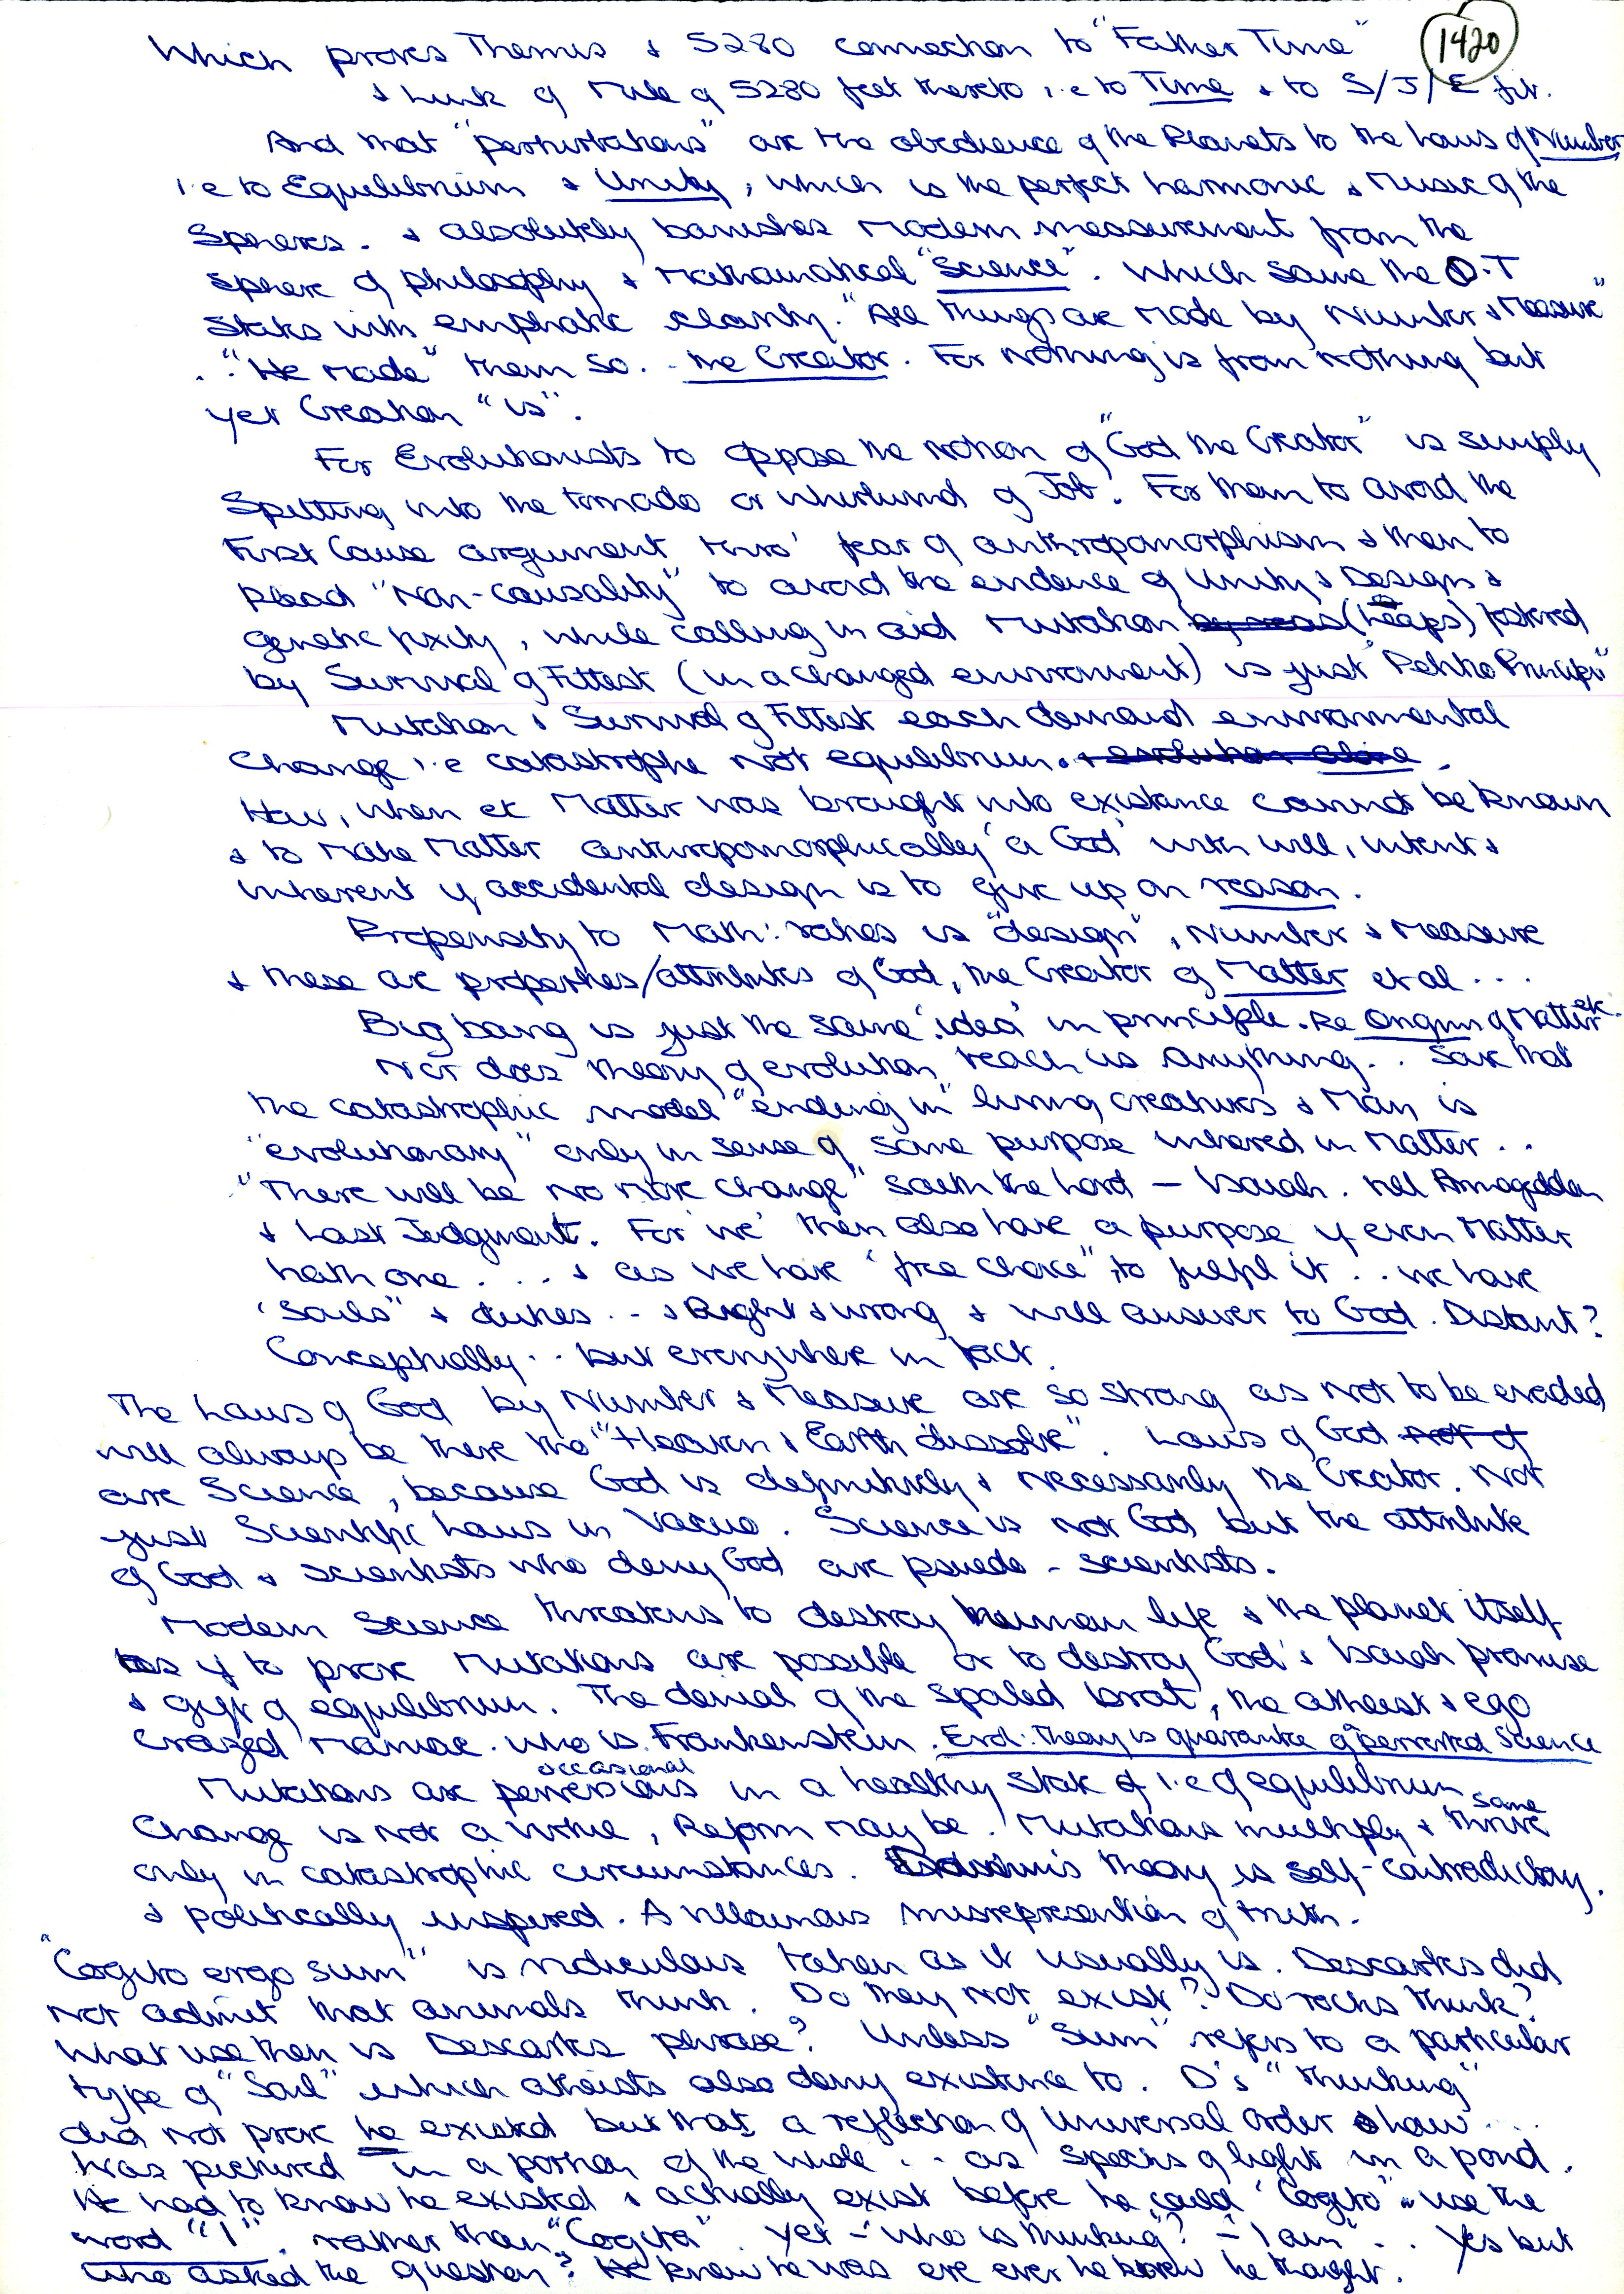 1420
Which proves Themis & 5280 connection to "Father Time"
& link of Mile of 5280 feet thereto i.e to Time & to S/J/E
And that "perturbations" are the obedience of the Planets to the Laws of Number
i.e to Equilibrium & Unity, which is the perfect harmonic & Music of the
Spheres. & absolutely banishes modern measurement from the
sphere of philosophy & Mathematical "Science". Which same the O.T
states with emphatic clarity. "All things are made by Number & Measure"
. "He made" them so. . the Creator. For nothing is from nothing but
yet Creation "is".
For Evolutionists to oppose the notion of "God the Creator" is simply
Spitting into the tornado or whirlwind of Job! For them to avoid the
First Cause argument thro' fear of anthropomorphism & then to
plead "Non-causality" to avoid the evidence of Unity & Design &
genetic fixity, while calling in aid Mutation (heaps) fostered
by Survival of Fittest (in a changed environment) is just
Mutation & Survival of Fittest each demand environmental
change i.e catastrophe not equilibrium. & evolution alone.
How, when etc Matter was brought into existance cannot be known
& to make Matter anthropomorphically 'a God' with will, intent &
inherent if accidental design is to give up on reason.
Propensity to Math: ratios is "design", Number & Measure
& these are properties/attributes of God, the Creator of Matter et al ...
Big bang is just the same 'idea' in principle. Re Origin of Matter etc.
Nor does theory of evolution teach us anything. . Save that
the catastrophic model "ending in" living creatures & Man is
"evolutionary" only in sense of some purpose inhered in Matter . .
"There will be no more change" saith the Lord — Isaiah. till Armageddon
& Last Judgment. For 'we' then also have a purpose if even Matter
hath one . . . . & as we have "free choice" to fulfil it . . we have
"Souls" & duties. . & Right & wrong & will answer to God. Distant?
Conceptually . . but everywhere in fact.
The Laws of God by Number & Measure are so strong as not to be evaded
will always be there tho' "Heaven & Earth dissolve". Laws of God not of
are Science, because God is definitively & necessarily the Creator. Not
just Scientific Laws in Vacuo. Science is not God but the attribute
of God & scientists who deny God are psuedo-scientists.
Modern Science threatens to destroy human life & the planet itself
as if to prove Mutations are possible or to destroy God's Isaiah promise
& gift of equilibrium. The denial of the spoiled brat, the atheist & ego
crazed maniac. who is Frankenstein. Evol: Theory is guarantee of "perverted Science
Mutations are occasional perversions in a healthy state of i.e of equilibrium
Change is not a virtue, Reform may be. Mutations multiply & some thrive
only in catastrophic circumstances. Darwin's theory is self-contradictory.
& politically inspired. A villainous misrepresentation of truth.
"Cogito ergo sum" is ridiculous taken as it usually is. Descartes did
not admit that animals think. Do they not exist? Do rocks think?
What use then is Descartes phrase? Unless "Sum" refers to a particular
type of "Soul" which atheists also deny existence to. D's "thinking"
did not prove he existed but that a reflection of Universal Order & Law ...
was pictured in a portion of the whole . . as specks of light in a pond.
He had to know he existed & actually exist before he could 'Cogito' or use the
word "I", rather than "Cogito". Yet – "who is thinking? – I am" . . Yes but
who asked the question? He knew he was ere ever he knew he thought.